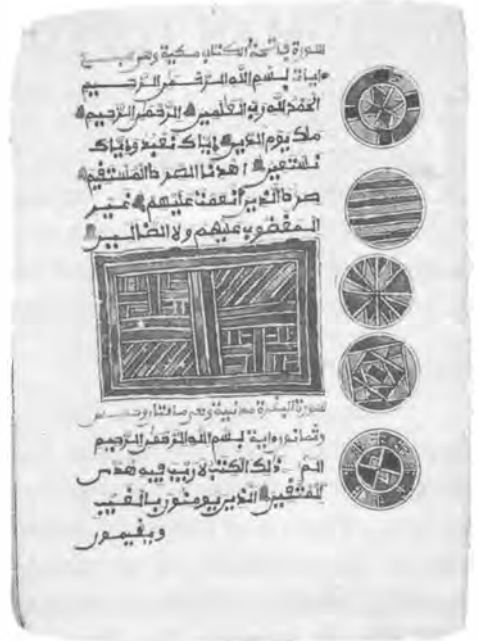 سورة فاتحة الكتاب مكية وهي سبع
ءايات بسم الله الرحمن الرحيم
الحمد لله رب العلمين الرحمن الرحيم
ملك يوم الدين إياك نعبد وإياك
نستعين اهدنا الصرط المستقيم
صرط الذين أنعمت عليهم غير
المغضوب عليهم ولا الضالين
سورة البقرة مدنية وهي مائتان وخمس
وثمانون ءاية بسم الله الرحمن الرحيم
الم ذلك الكتب لا ريب فيه هدى
للمتقين الذين يومنون بالغيب
ويقيمون